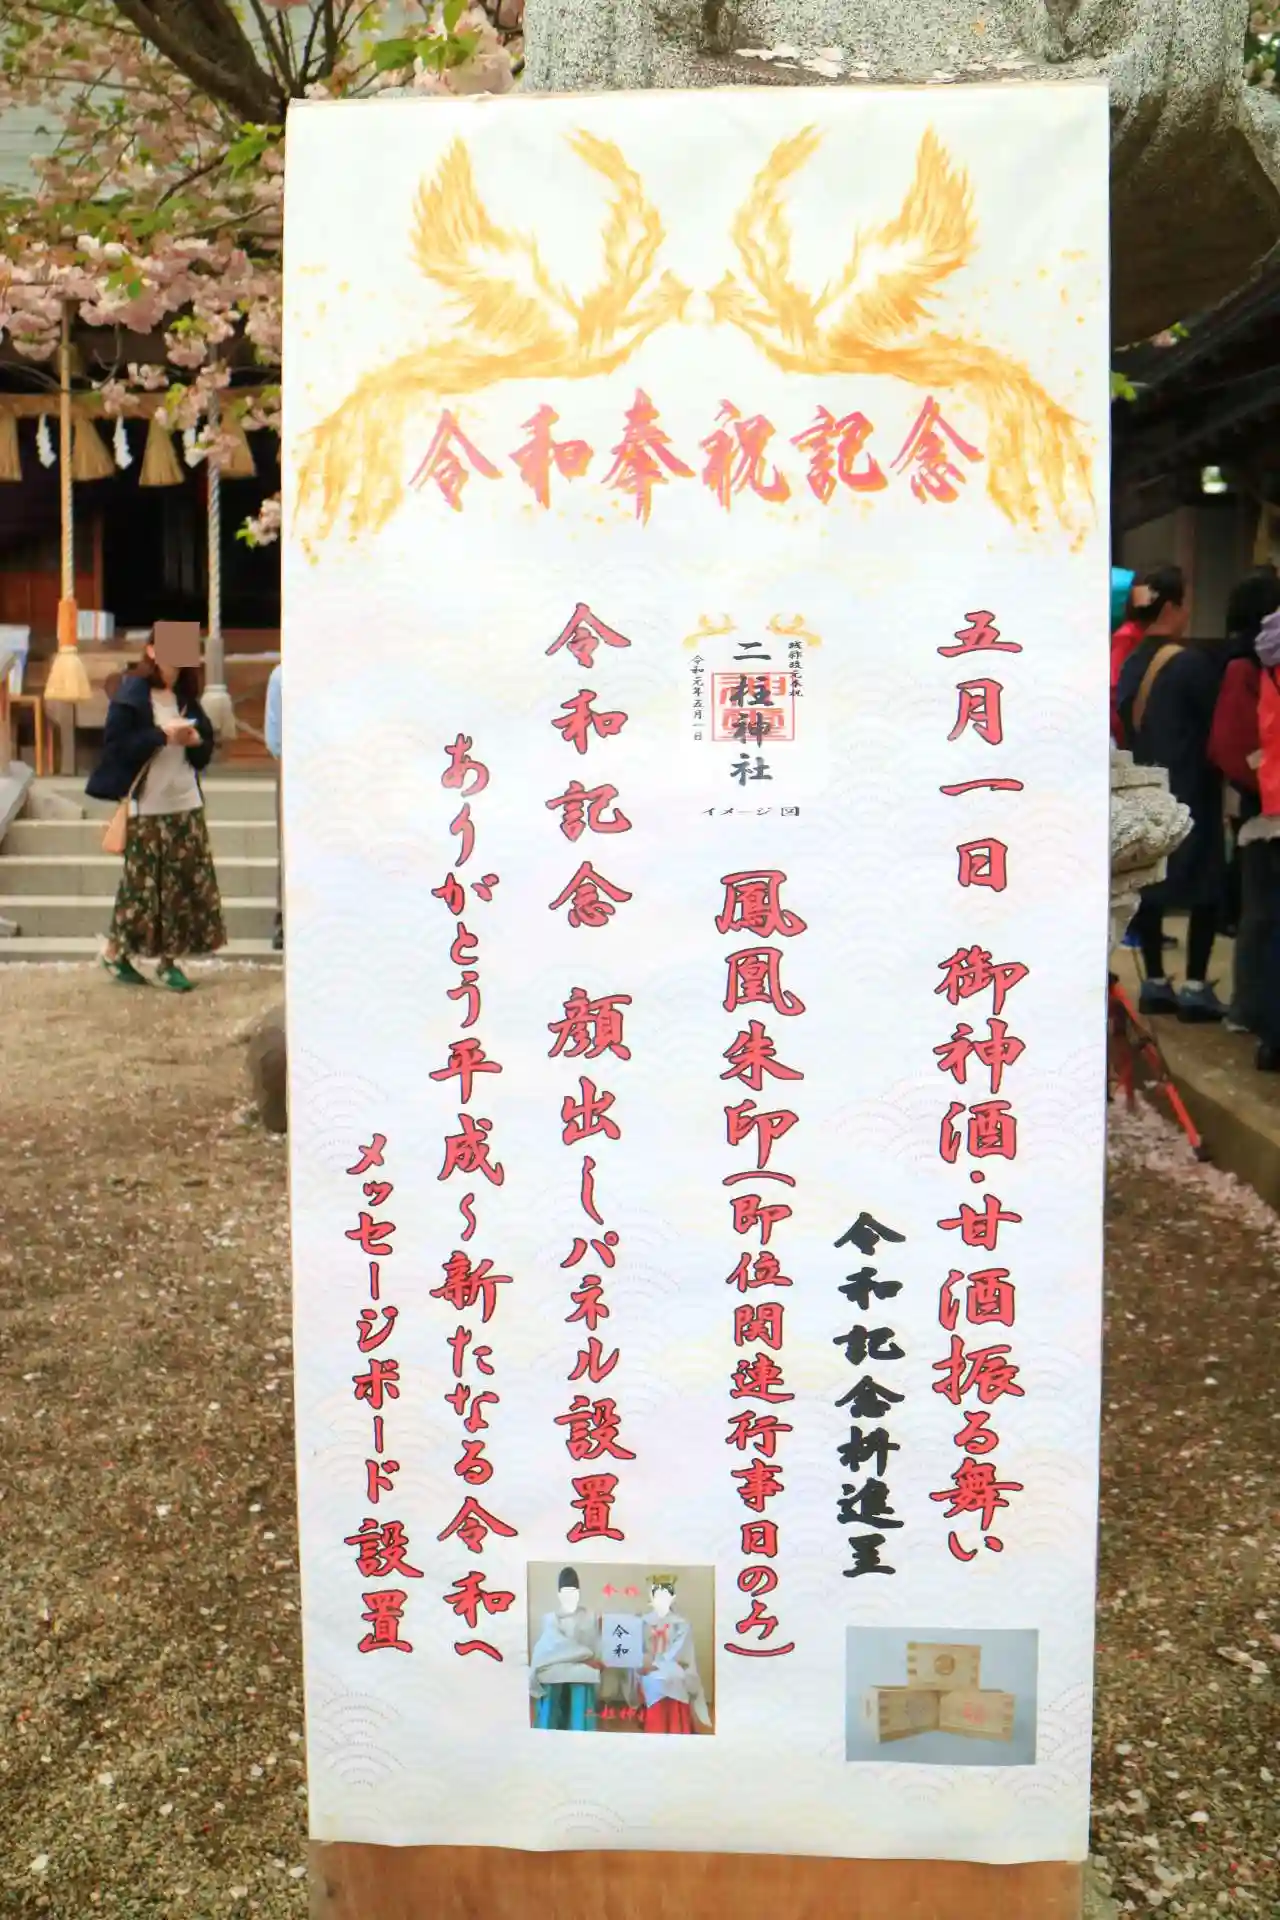 令和奉祝記念
五月一日 御神酒・甘酒振る舞い
令和記念枡進呈
二柱神社
令和元年五月一日
イメージ図
鳳凰朱印(即位関連行事日のみ)
令和記念 顔出しパネル設置
令和
二柱神社
ありがとう平成～新たなる令和へ
メッセージボード設置